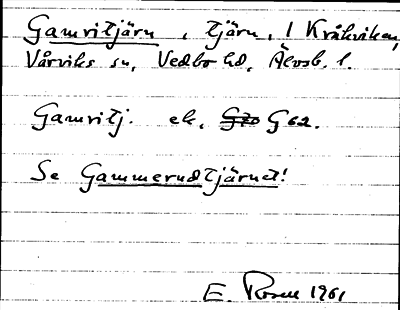 Gamritjärn, tjärn, i Kråkviken,
Vårviks sn, Vedbo hd, Älvsb. l.
Gamritj. ek. G62.
Se Gammerudtjärnet!
E. Rosen 1961